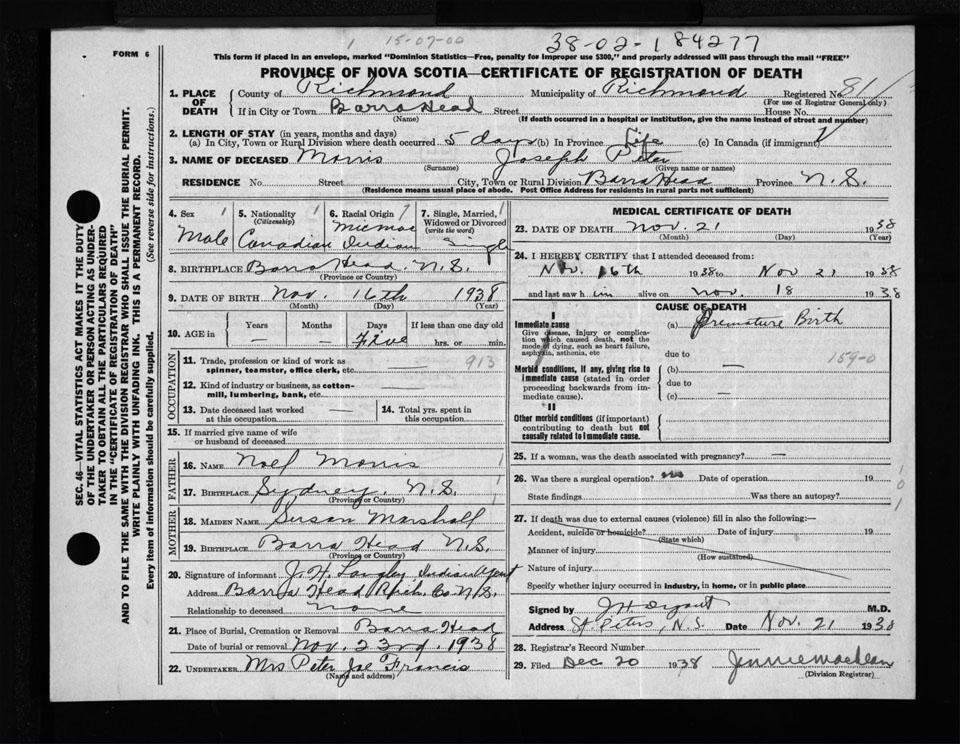 FORM 6
1 15-07-00 38-02-1 84277
This form if placed in an envelope, marked "Dominion Statistics—Free, penalty for improper use $300," and properly addressed will pass through the mail "FREE"
PROVINCE OF NOVA SCOTIA—CERTIFICATE OF REGISTRATION OF DEATH
1. PLACE OF DEATH County of Richmond Municipality of Richmond Registered No. 81
(For use of Registrar General only)
If in City or Town Barra Head Street House No.
(Name) (If death occurred in a hospital or institution, give the name instead of street and number)
2. LENGTH OF STAY (in years, months and days)
(a) In City, Town or Rural Division where death occurred 5 days (b) In Province Life (c) In Canada (if immigrant)
3. NAME OF DECEASED Morris Joseph Peter
(Surname) (Given name or names)
RESIDENCE No. Street City, Town or Rural Division Barra Head Province N.S.
(Residence means usual place of abode. Post Office Address for residents in rural parts not sufficient)
4. Sex Male
5. Nationality (Citizenship) Canadian
6. Racial Origin Micmac Indian
7. Single, Married, Widowed or Divorced (write the word) Single
8. BIRTHPLACE Barra Head. N.S.
(Province or Country)
9. DATE OF BIRTH Nov. 16th 1938
(Month) (Day) (Year)
10. AGE in Years — Months — Days Five If less than one day old hrs. or min.
OCCUPATION
11. Trade, profession or kind of work as spinner, teamster, office clerk, etc. — 913
12. Kind of industry or business, as cotton-mill, lumbering, bank, etc. —
13. Date deceased last worked at this occupation —
14. Total yrs. spent in this occupation
15. If married give name of wife or husband of deceased
FATHER
16. NAME Noel Morris
17. BIRTHPLACE Sydney. N.S.
(Province or Country)
MOTHER
18. MAIDEN NAME Susan Marshall
19. BIRTHPLACE Barra Head N.S.
(Province or Country)
20. Signature of informant J. H. Langley Indian Agent
Address Barra Head Rich. Co. N.S.
Relationship to deceased none
21. Place of Burial, Cremation or Removal Barra Head
Date of burial or removal Nov. 23rd. 1938
22. UNDERTAKER Mrs Peter Joe Francis
(Name and address)
MEDICAL CERTIFICATE OF DEATH
23. DATE OF DEATH Nov. 21 1938
(Month) (Day) (Year)
24. I HEREBY CERTIFY that I attended deceased from:
Nov. 16th 1938 to Nov 21 1938
and last saw him alive on Nov. 18 1938
CAUSE OF DEATH
I
Immediate cause
Give disease, injury or complication which caused death, not the mode of dying, such as heart failure, asphyxia, asthenia, etc
(a) Premature Birth
due to 159-0
Morbid conditions, if any, giving rise to immediate cause (stated in order proceeding backwards from immediate cause).
(b) —
due to
(c) —
II
Other morbid conditions (if important) contributing to death but not causally related to immediate cause.
25. If a woman, was the death associated with pregnancy? —
26. Was there a surgical operation? no Date of operation 19
State findings Was there an autopsy?
27. If death was due to external causes (violence) fill in also the following:—
Accident, suicide or homicide? Date of injury 19
(State which)
Manner of injury
(How sustained)
Nature of injury
Specify whether injury occurred in industry, in home, or in public place
Signed by M.D.
Address St. Peters, N.S. Date Nov. 21 1938
28. Registrar's Record Number
29. Filed Dec 20 1938 Jennie MacLean
(Division Registrar)
SEC. 46—VITAL STATISTICS ACT MAKES IT THE DUTY OF THE UNDERTAKER OR PERSON ACTING AS UNDERTAKER TO OBTAIN ALL THE PARTICULARS REQUIRED IN THE "CERTIFICATE OF REGISTRATION OF DEATH" AND TO FILE THE SAME WITH THE DIVISION REGISTRAR WHO SHALL ISSUE THE BURIAL PERMIT.
WRITE PLAINLY WITH UNFADING INK. THIS IS A PERMANENT RECORD.
Every item of information should be carefully supplied. (See reverse side for instructions.)